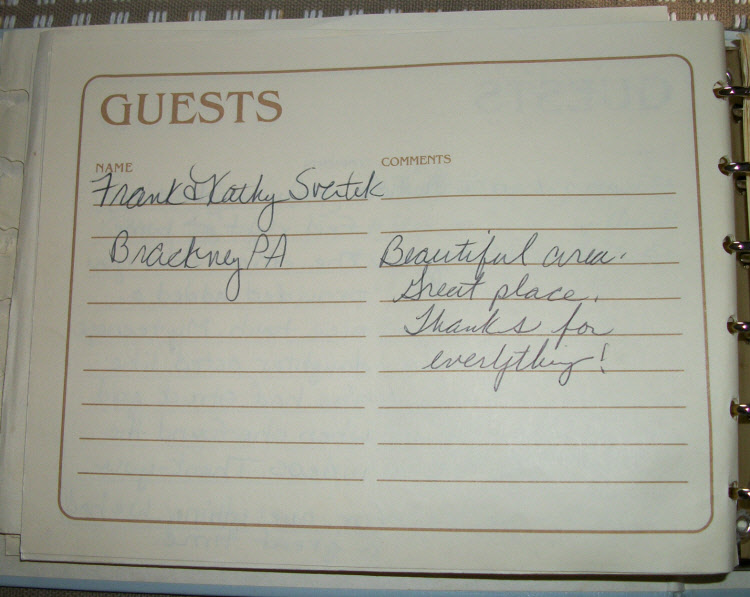 GUESTS
NAME
COMMENTS
Frank & Kathy Svertek
Brackney PA
Beautiful area.
Great place.
Thanks for
everything!